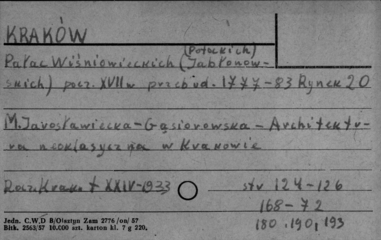 KRAKÓW
(Potockich)
Pałac Wiśniowieckich (Jabłonow-
skich) pocz. XVII w przebud. 1777-83 Rynek 20
M. Jarosławiecka-Gąsiorowska - Architektu-
ra neoklasyczna w Krakowie
Rocz. Krak. t XXIV-1933 str 124-126
168-72
180, 190, 193
Jedn. C.W.D B/Olsztyn Zam 2776 /on/ 57
Bibk. 2563/57 10.000 szt. karton kl. 7 g 220.